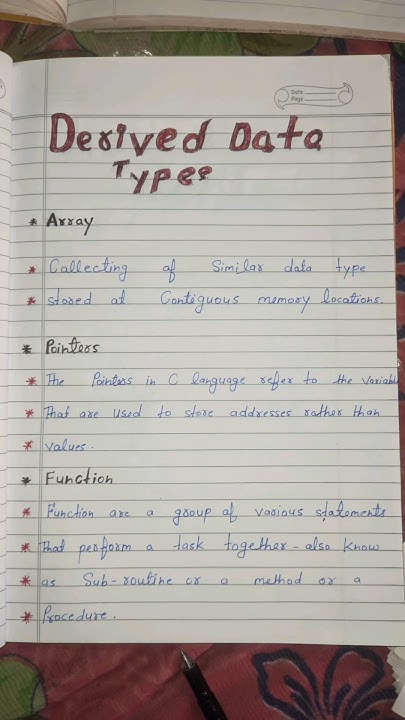 Date
Page
Derived Data
Types
* Array
* Collecting of Similar data type
* stored at Contiguous memory locations.
* Pointers
* The Pointers in C language refer to the variable
* That are used to store addresses rather than
* values.
* Function
* Function are a group of various statements
* That perform a task together - also know
* as Sub-routine or a method or a
* Procedure.